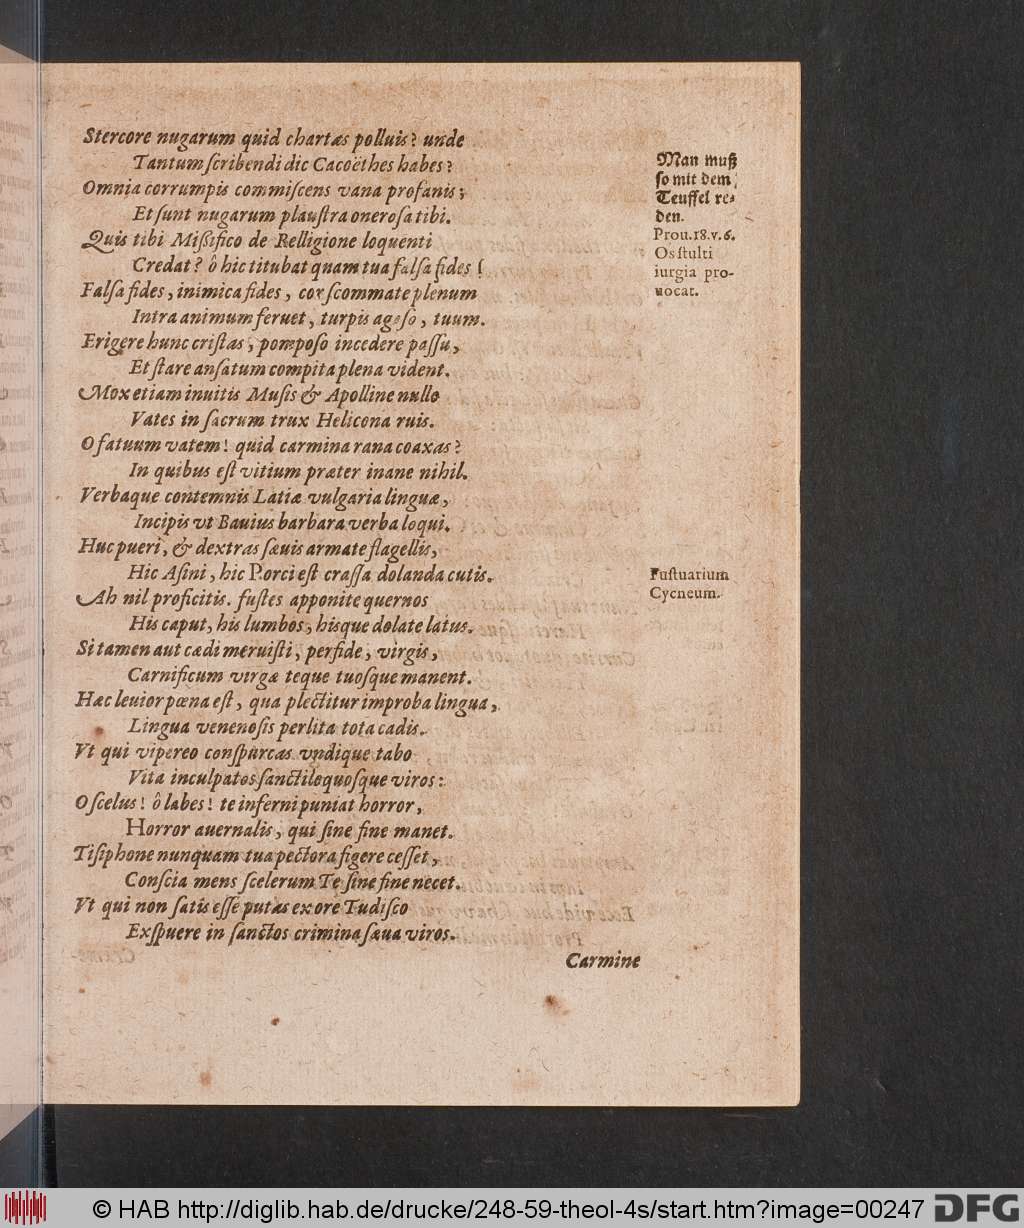 Stercore nugarum quid chartas polluis? unde
Tantum ſcribendi dic Cacoëthes habes?
Omnia corrumpis commiſcens vana profanis;
Et ſunt nugarum plauſtra oneroſa tibi.
Quis tibi Mißifico de Relligione loquenti
Credat? ô hic titubat quam tua falſa fides!
Falſa fides, inimica fides, cor ſcommate plenum
Intra animum feruet, turpis agaſo, tuum.
Erigere hunc criſtas, pompoſo incedere paſſu,
Et ſtare anſatum compita plena vident.
Mox etiam inuitis Muſis & Apolline nullo
Vates in ſacrum trux Helicona ruis.
O fatuum vatem! quid carmina rana coaxas?
In quibus eſt vitium præter inane nihil.
Verbaque contemnis Latiæ vulgaria linguæ,
Incipis vt Bauius barbara verba loqui.
Huc pueri, & dextras ſæuis armate flagellis,
Hic Aſini, hic Porci eſt craſſa dolanda cutis.
Ah nil proficitis. fuſtes apponite quernos
His caput, his lumbos, hisque dolate latus.
Si tamen aut cædi meruiſti, perfide, virgis,
Carnificum virgæ teque tuosque manent.
Hæc leuior pœna eſt, qua plectitur improba lingua,
Lingua venenoſis perlita tota cadis.
Vt qui vipereo conſpurcas vndique tabo
Vita inculpatos ſanctiloquoſque viros:
O ſcelus! ô labes! te inferni puniat horror,
Horror auernalis, qui ſine fine manet.
Tiſiphone nunquam tua pectora figere ceſſet,
Conſcia mens ſcelerum Te ſine fine necet.
Vt qui non ſatis eſſe putas ex ore Tudiſco
Exſpuere in ſanctos crimina ſæua viros.
Carmine
Man muß
ſo mit dem
Teuffel re-
den.
Prou. 18. v. 6.
Os ſtulti
iurgia pro-
uocat.
Fuſtuarium
Cycneum.
© HAB http://diglib.hab.de/drucke/248-59-theol-4s/start.htm?image=00247
DFG